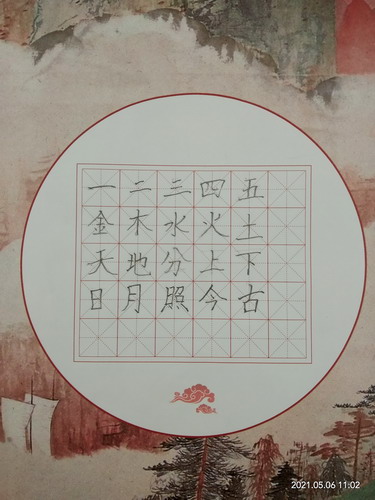 一二三四五
金木水火土
天地分上下
日月照今古
2021.05.06 11:02